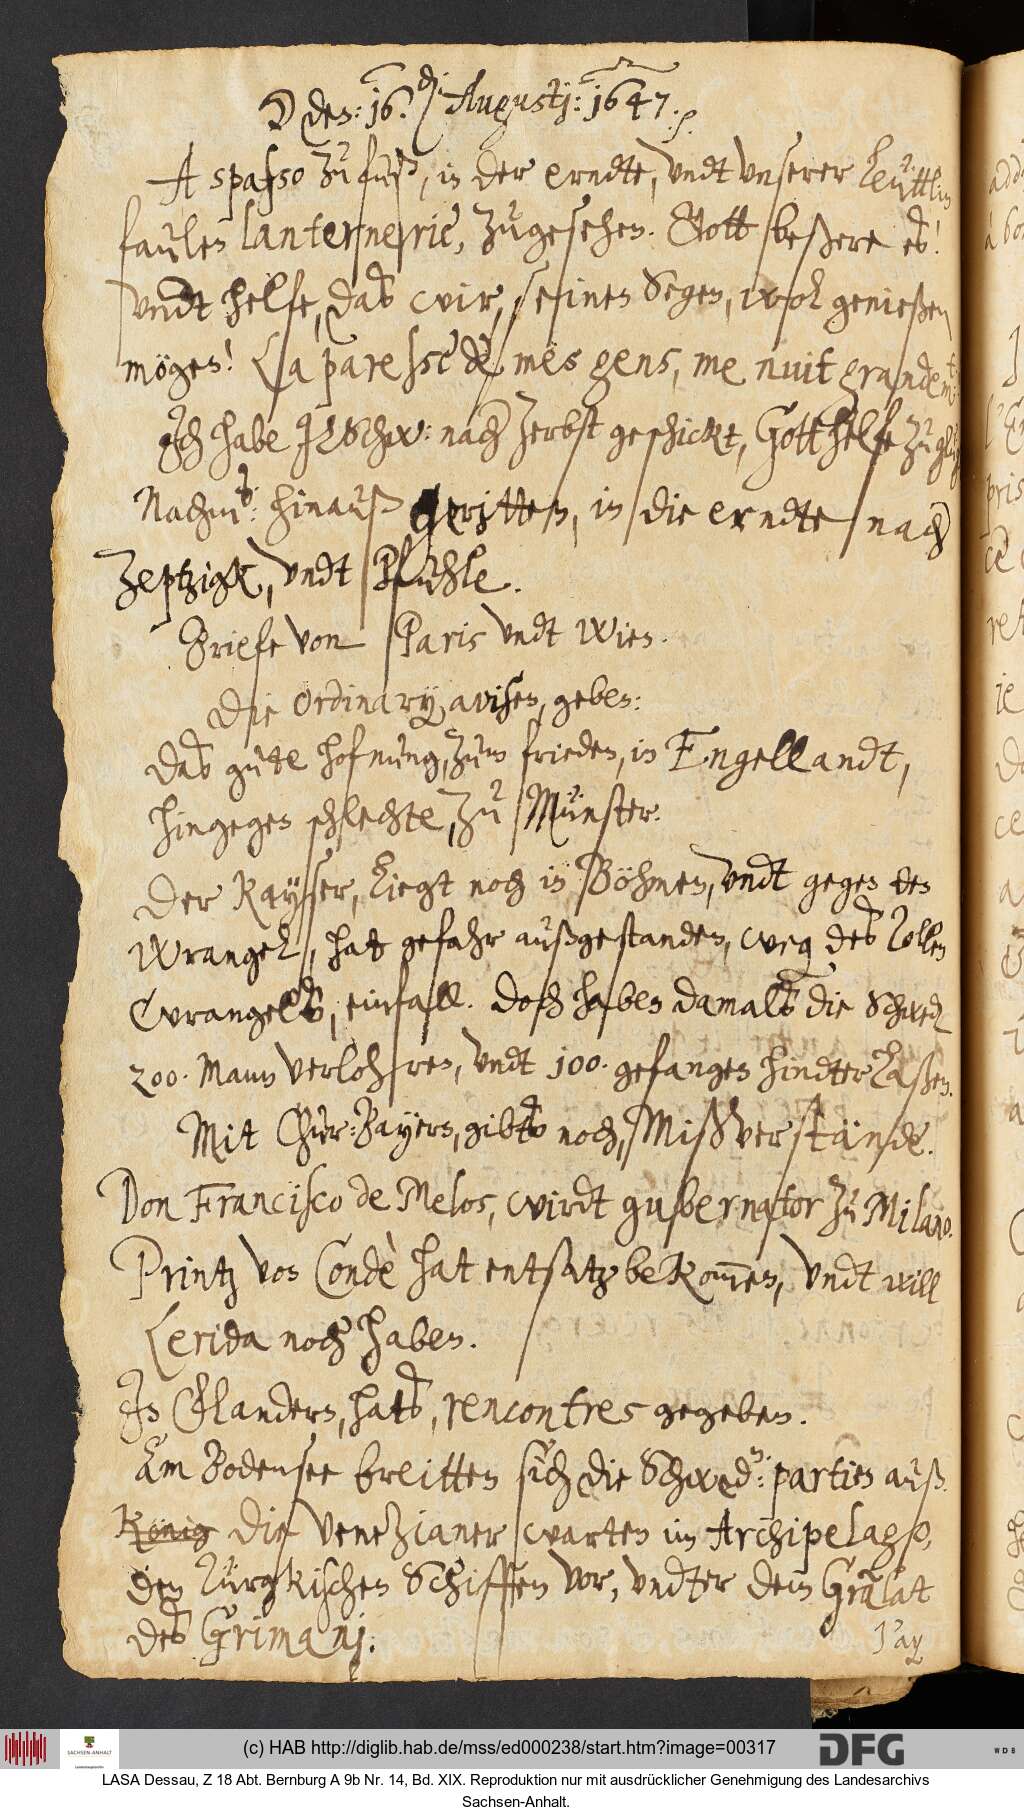 ☽ den: 16. Augustj: 1647.
A spasso zu fuß, in der erndte, undt unserer leüttlin
faulen lanternerie, zugesehen. Gott beßere es!
undt helfe, das wir, seinen Segen, wol genießen
mögen! La paresse de mes gens, me nuit grandem:t
Jch habe nach Zerbst geschickt, Gott helfe zu
Nachm: hinauß geritten, in die erndte nach
Zeptzigk, undt Pfuhle.
Briefe von Paris undt Wien.
Die Ordinarij avisen, geben:
Das gute hofnung, zum frieden, in Engellandt,
hingegen schlechte, zu Münster.
Der Kayser, liegt noch in Böhmen, undt gegen den
Wrangel, hat gefahr außgestanden, weg des Tollen
Wrangels, einfall. Doch haben damals die Schwed
200. Mann verlohren, undt 100. gefangen hinderlaßen.
Mit Chur: Bayern, gibts noch, Mißverstände.
Don Francisco de Melos, wirdt gubernator zu Milano.
Printz von Condè hat entsatz bekommen, undt will
Lerida noch haben.
Jn Flandern, hats, rencontres gegeben.
Am Bodensee breitten sich die Schwed: partien auß.
König Die Venezianer warten im Archipelago,
den Türgkischen Schiffen vor, undter dem Gralat
des Grimanj.
J'ay
(c) HAB http://diglib.hab.de/mss/ed000238/start.htm?image=00317
SACHSEN-ANHALT
DFG
WDB
LASA Dessau, Z 18 Abt. Bernburg A 9b Nr. 14, Bd. XIX. Reproduktion nur mit ausdrücklicher Genehmigung des Landesarchivs
Sachsen-Anhalt.